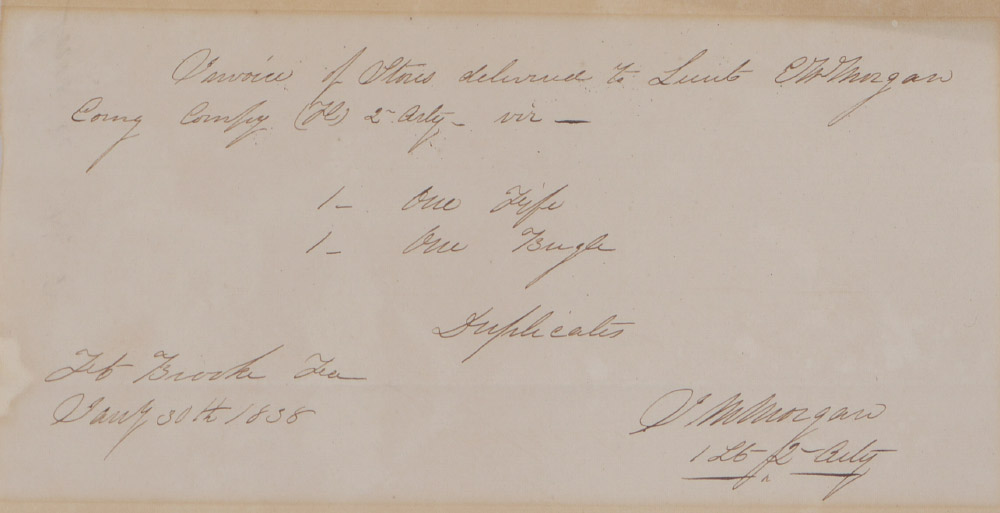 Invoice of Stores delivered to Lieut C W Morgan
Comg Compy (H) 2 Arty - viz -
1 - One Fife
1 - One Bugle
Duplicates
Ft Brooke Fa
Jany 30th 1838
Morgan
1 Lt 2 Arty